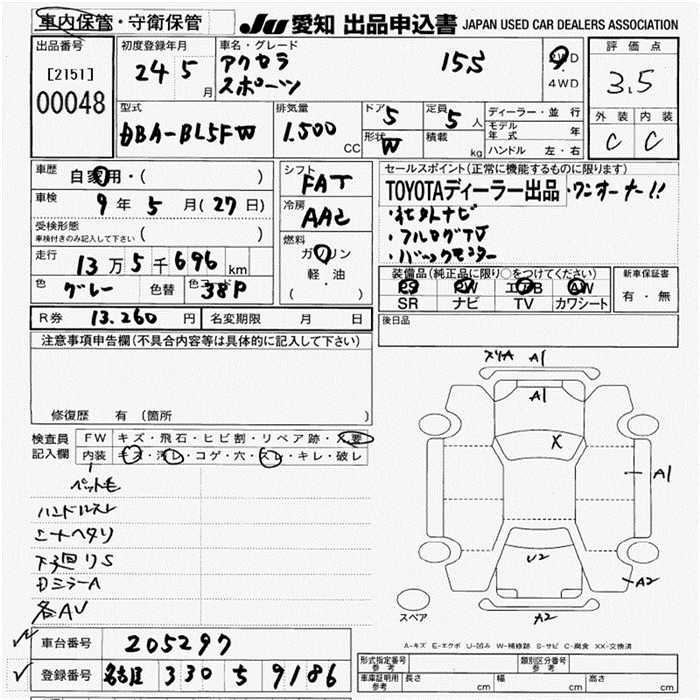 車内保管・守衛保管 JU 愛知 出品申込書 JAPAN USED CAR DEALERS ASSOCIATION
出品番号 初度登録年月 車名・グレード 評価点
[2151] 24 5 月 アクセラ スポーツ 15S 2WD ・ 4WD 3.5
00048
型式 排気量 ドア 5 定員 5 人 ディーラー・並行 外装 内装
DBA-BL5FW 1.500 CC 形状 W 積載 kg モデル年式 年 C C
ハンドル 左・右
車歴 自家用・( ) シフト FAT セールスポイント(正常に機能するものに限ります)
車検 9 年 5 月 (27 日) 冷房 AAC TOYOTAディーラー出品 ・ワンオーナー!!
受検形態 ( ) ・社外ナビ
車検付きのみ記入して下さい 燃料 ・フルセグTV
走行 13 万 5 千 696 km ガソリン ・バックモニター
軽・油
( )
色 グレー 色替 色コード 38P 装備品(純正品に限り○をつけてください) 新車保証書
PS PW エアB AW 有・無
SR ナビ TV カワシート
R券 13.260 円 名変期限 月 日 後日品
注意事項申告欄(不具合内容等は具体的に記入して下さい)
修復歴 有 (箇所 )
検査員 FW キズ・飛石・ヒビ割・リペア跡・X要
記入欄 内装 キズ・汚レ・コゲ・穴・スレ・キレ・破レ
ペット毛
ハンドルスレ
シートヘタリ
下廻りS
Dミラー A
各AU
車台番号 205297
登録番号 名古屋 330 す 9186
スリA A1
A1
X
A1
U2
A2
A2
スペア
A-キズ E-エクボ U-凹み W-補修跡 S-サビ C-腐食 XX-交換済
形式指定番号 参考 類別区分番号 参考
車庫証明用 参考 長さ cm 幅 cm 高さ cm